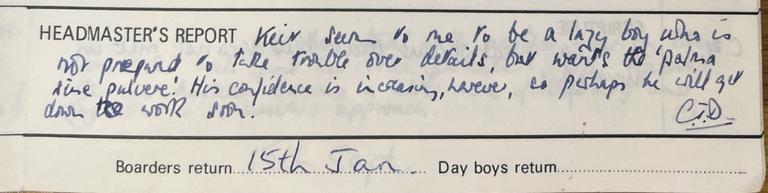 HEADMASTER'S REPORT Keir seems to me to be a lazy boy who is
not prepared to take trouble over details, but wants the 'palma
sine pulvere'. His confidence is increasing, however, so perhaps he will get
down to work soon. C.T.D.
Boarders return 15th Jan. Day boys return